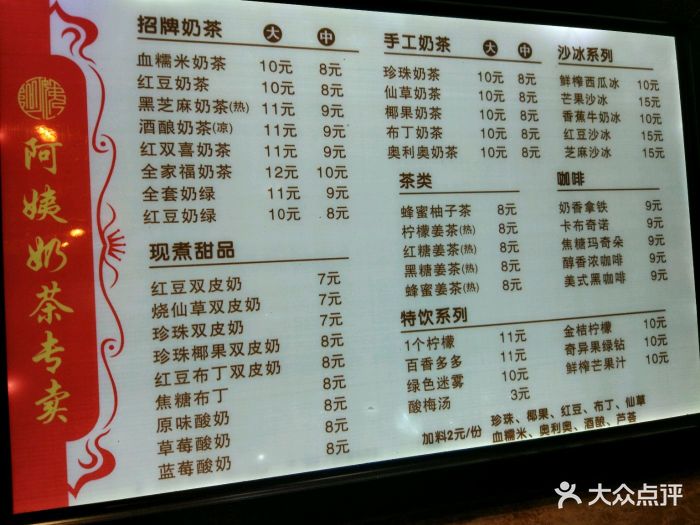 阿姨奶茶专卖
招牌奶茶 大 中
血糯米奶茶 10元 8元
红豆奶茶 10元 8元
黑芝麻奶茶(热) 11元 9元
酒酿奶茶(凉) 11元 9元
红双喜奶茶 11元 9元
全家福奶茶 12元 10元
全套奶绿 11元 9元
红豆奶绿 10元 8元
现煮甜品
红豆双皮奶 7元
烧仙草双皮奶 7元
珍珠双皮奶 7元
珍珠椰果双皮奶 8元
红豆布丁双皮奶 8元
焦糖布丁 8元
原味酸奶 8元
草莓酸奶 8元
蓝莓酸奶 8元
手工奶茶 大 中
珍珠奶茶 10元 8元
仙草奶茶 10元 8元
椰果奶茶 10元 8元
布丁奶茶 10元 8元
奥利奥奶茶 10元 8元
茶类
蜂蜜柚子茶 8元
柠檬姜茶(热) 8元
红糖姜茶(热) 8元
黑糖姜茶(热) 8元
蜂蜜姜茶(热) 8元
沙冰系列
鲜榨西瓜冰 10元
芒果沙冰 15元
香蕉牛奶冰 10元
红豆沙冰 15元
芝麻沙冰 15元
咖啡
奶香拿铁 9元
卡布奇诺 9元
焦糖玛奇朵 9元
醇香浓咖啡 9元
美式黑咖啡 9元
特饮系列
1个柠檬 11元
百香多多 11元
绿色迷雾 10元
酸梅汤 3元
金桔柠檬 10元
奇异果绿钻 10元
鲜榨芒果汁 10元
加料2元/份
珍珠、椰果、红豆、布丁、仙草
血糯米、奥利奥、酒酿、芦荟
大众点评